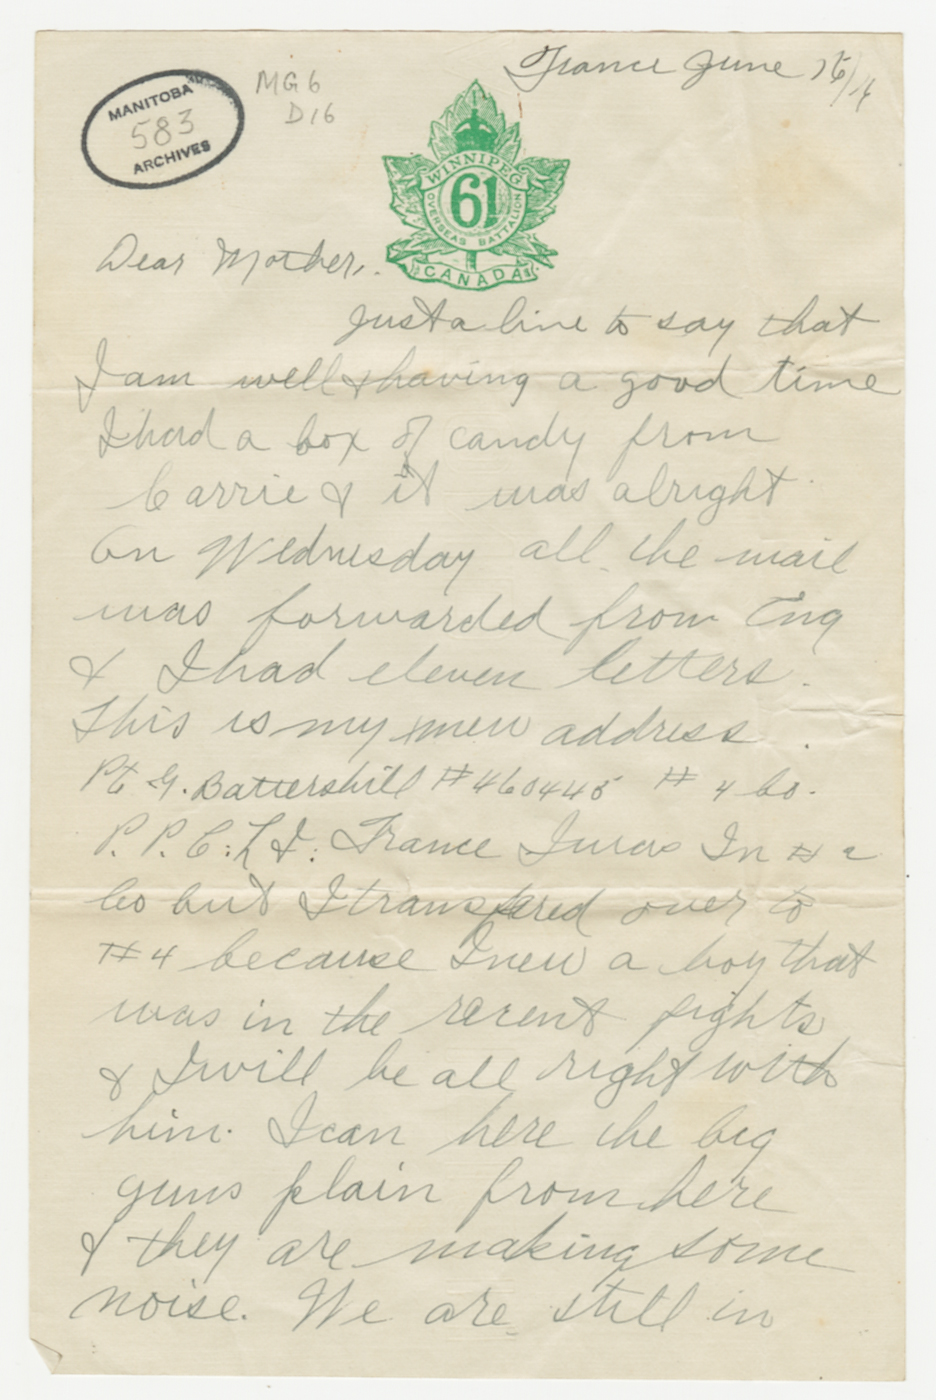 France June 16/16
MANITOBA
583
ARCHIVES
MG6
D16
WINNIPEG
61
OVERSEAS BATTALION
CANADA
Dear Mother,.
Just a line to say that
I am well & having a good time
I had a box of candy from
Carrie & it was alright
On Wednesday all the mail
was forwarded from Eng
& I had eleven letters.
This is my new address.
Pt G. Battershill #460445 #4 Co.
P.P.C.L.I. France I was In #2
Co but I transfered over to
#4 because I new a boy that
was in the recent fights
& I will be all right with
him. I can here the big
guns plain from here
& they are making some
noise. We are still in